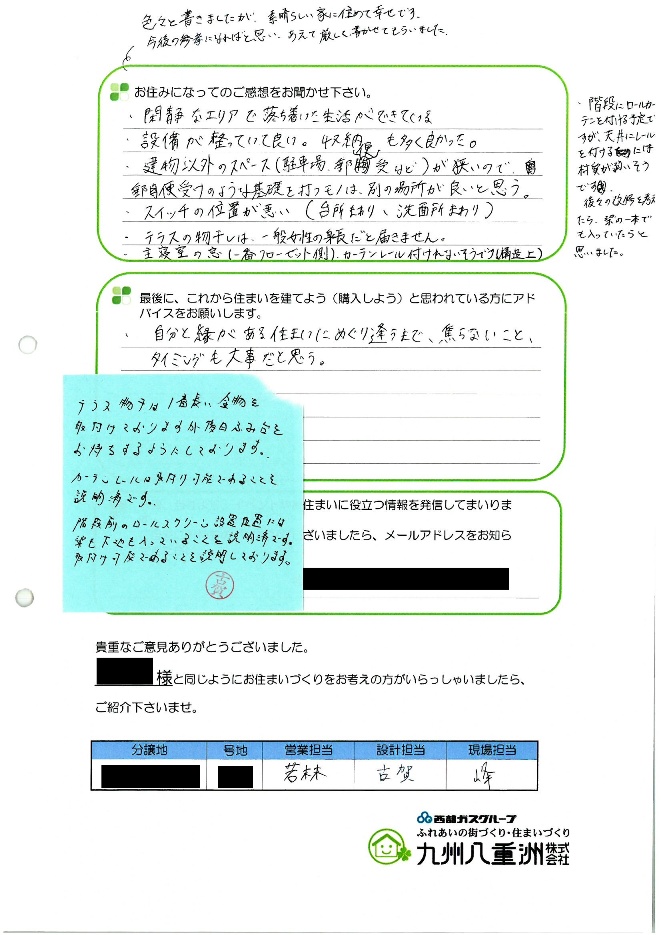 色々と書きましたが、素晴らしい家に住めて幸せです。
今後の参考になればと思い、あえて厳しく書かせてもらいました。
お住みになってのご感想をお聞かせ下さい。
・閑静なエリアで落ち着いた生活ができている
・設備が整っていて良い。収納も多く良かった。
・建物以外のスペース(駐車場、郵便受など)が狭いので、
郵便受けのような基礎を打つモノは、別の場所が良いと思う。
・スイッチの位置が悪い(台所まわり、洗面所まわり)
・テラスの物干しは、一般女性の身長だと届きません。
・主寝室の窓(一番クローゼット側)、カーテンレール付けれないそうです(構造上)
・階段にロールカー
テンを付ける予定で
すが、天井にレール
を付けるには
材質が弱いそう
です。
後々の改修を考え
たら、梁の一本で
も入っていたらと
思いました。
最後に、これから住まいを建てよう(購入しよう)と思われている方にアド
バイスをお願いします。
・自分と縁がある住まいにめぐり逢うまで、焦らないこと、
タイミングも大事だと思う。
テラス物干は1番長い金物を
取付けておりますが後日ふみ台を
お持ちするようにしております。
カーテンレールは取付け可能であることを
説明済です。
階段前のロールスクリーン設置位置には
梁も下地も入っていることを説明済です。
取付け可能であることを説明しております。
古賀
住まいに役立つ情報を発信してまいりま
ざいましたら、メールアドレスをお知ら
貴重なご意見ありがとうございました。
様と同じようにお住まいづくりをお考えの方がいらっしゃいましたら、
ご紹介下さいませ。
分譲地 号地 営業担当 設計担当 現場担当
若林 古賀 峰
西部ガスグループ
ふれあいの街づくり・住まいづくり
九州八重洲株式会社